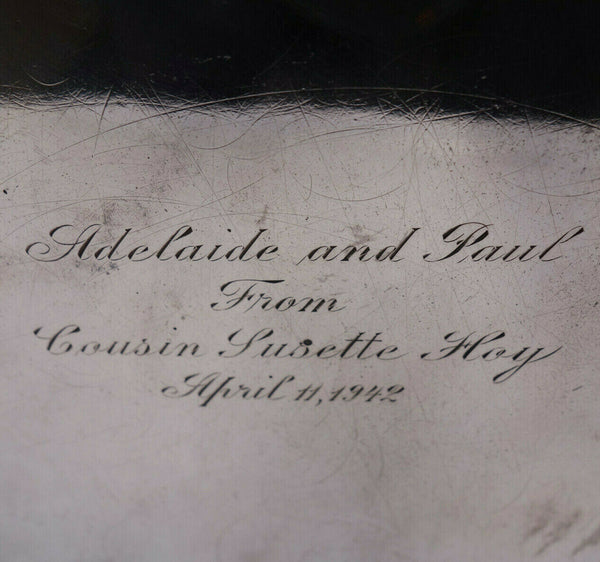 Adelaide and Paul
From
Cousin Susette Hoy
April 11, 1942